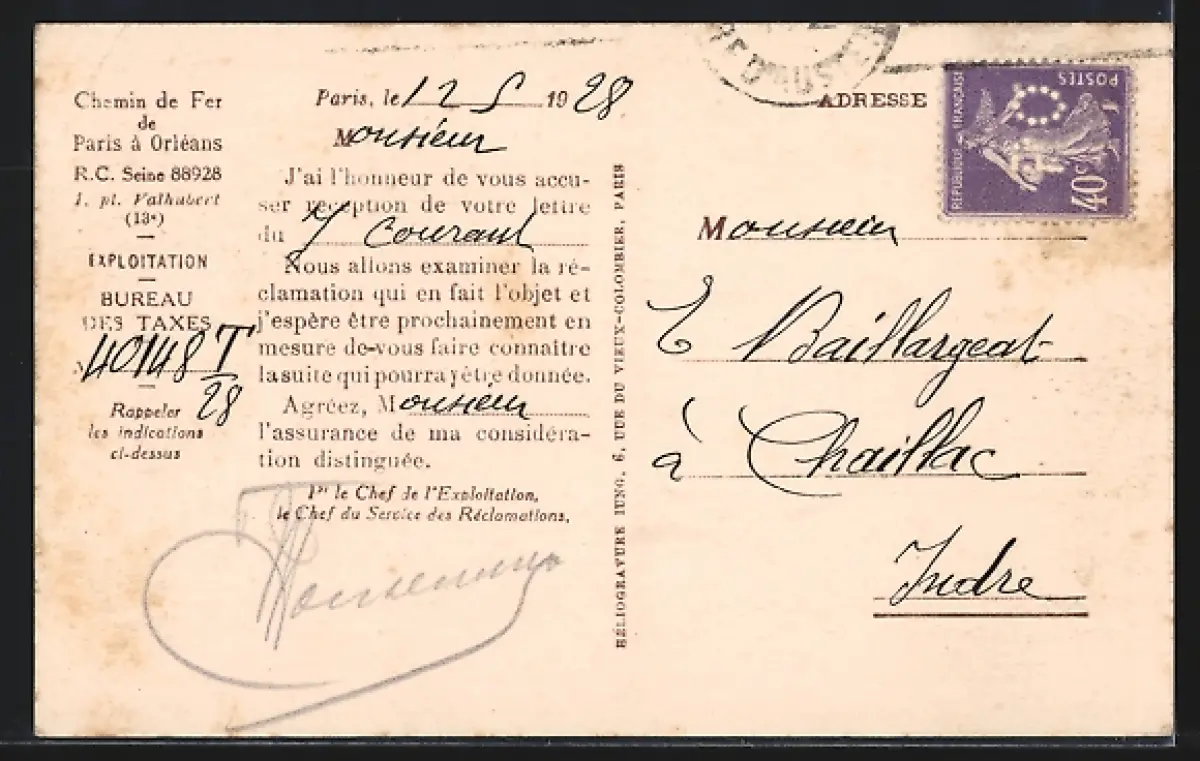 Chemin de Fer
de
Paris à Orléans
R.C. Seine 88928
1. pl. Valhubert
(13e)
EXPLOITATION
BUREAU
DES TAXES
40148 T
28
Rappeler
les indications
ci-dessus
Paris, le 12 5 1928
Monsieur
J'ai l'honneur de vous accu-
ser réception de votre lettre
du 7 Courant
Nous allons examiner la ré-
clamation qui en fait l'objet et
j'espère être prochainement en
mesure de vous faire connaître
la suite qui pourra y être donnée.
Agréez, Monsieur
l'assurance de ma considéra-
tion distinguée.
Pr le Chef de l'Exploitation,
le Chef du Service des Réclamations,
HÉLIOGRAVURE IUNG. 6, RUE DU VIEUX-COLOMBIER, PARIS
ADRESSE
REPUBLIQUE FRANÇAISE
POSTES
40c
Monsieur
E Baillargeat
à Chaillac
Indre